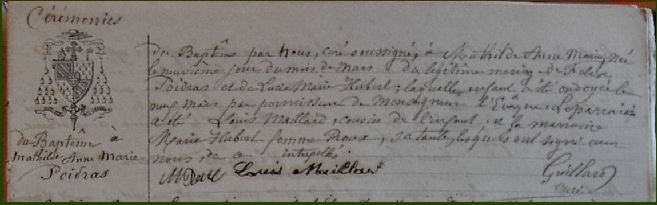 Cérémonies
du Baptême à
Mathilde Anne Marie
Poidras
de Baptême par nous, curé soussigné, à Mathilde Anne Marie, née
le neuvième jour du mois de Mars du légitime mariage de
Poidras et de Lucie Marie Hubert; laquelle enfant a été ondoyée le
neuf Mars par permission de Monseigneur l'Evêque. Le parrain
a été Louis Maillard, cousin de l'enfant, et la marraine
Marie Hubert femme Roux, sa tante, lesquels ont signé avec
nous de ce interpellés
Louis Maillard
Guillard
curé